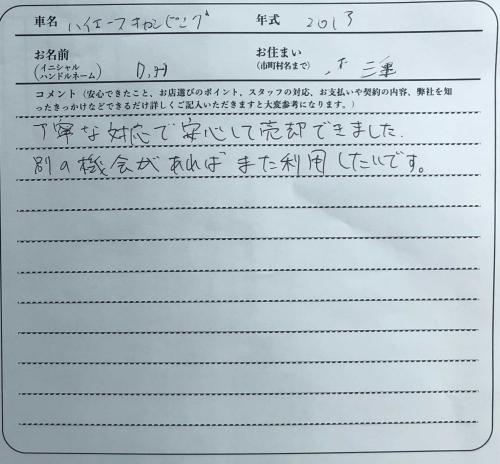 車名 ハイエースキャンピング 年式 2013
お名前 (イニシャル ハンドルネーム) D.H お住まい (市町村名まで) 三重
コメント（安心できたこと、お店選びのポイント、スタッフの対応、お支払いや契約の内容、弊社を知
ったきっかけなどできるだけ詳しくご記入いただきますと大変参考になります。）
丁寧な対応で安心して売却できました.
別の機会があればまた利用したいです。